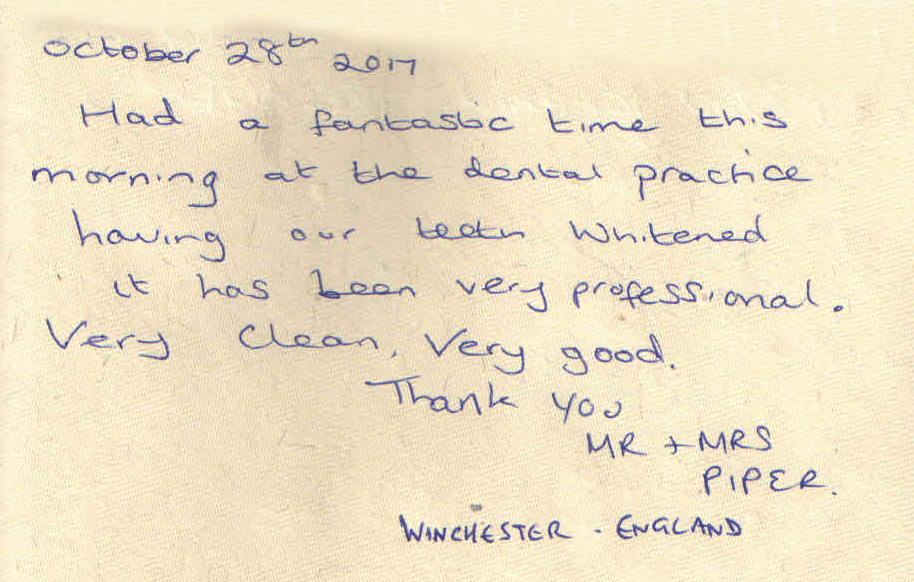 October 28th 2017
Had a fantastic time this
morning at the dental practice
having our teeth Whitened
it has been very professional.
Very Clean, Very good.
Thank you
MR + MRS
PIPER.
WINCHESTER - ENGLAND